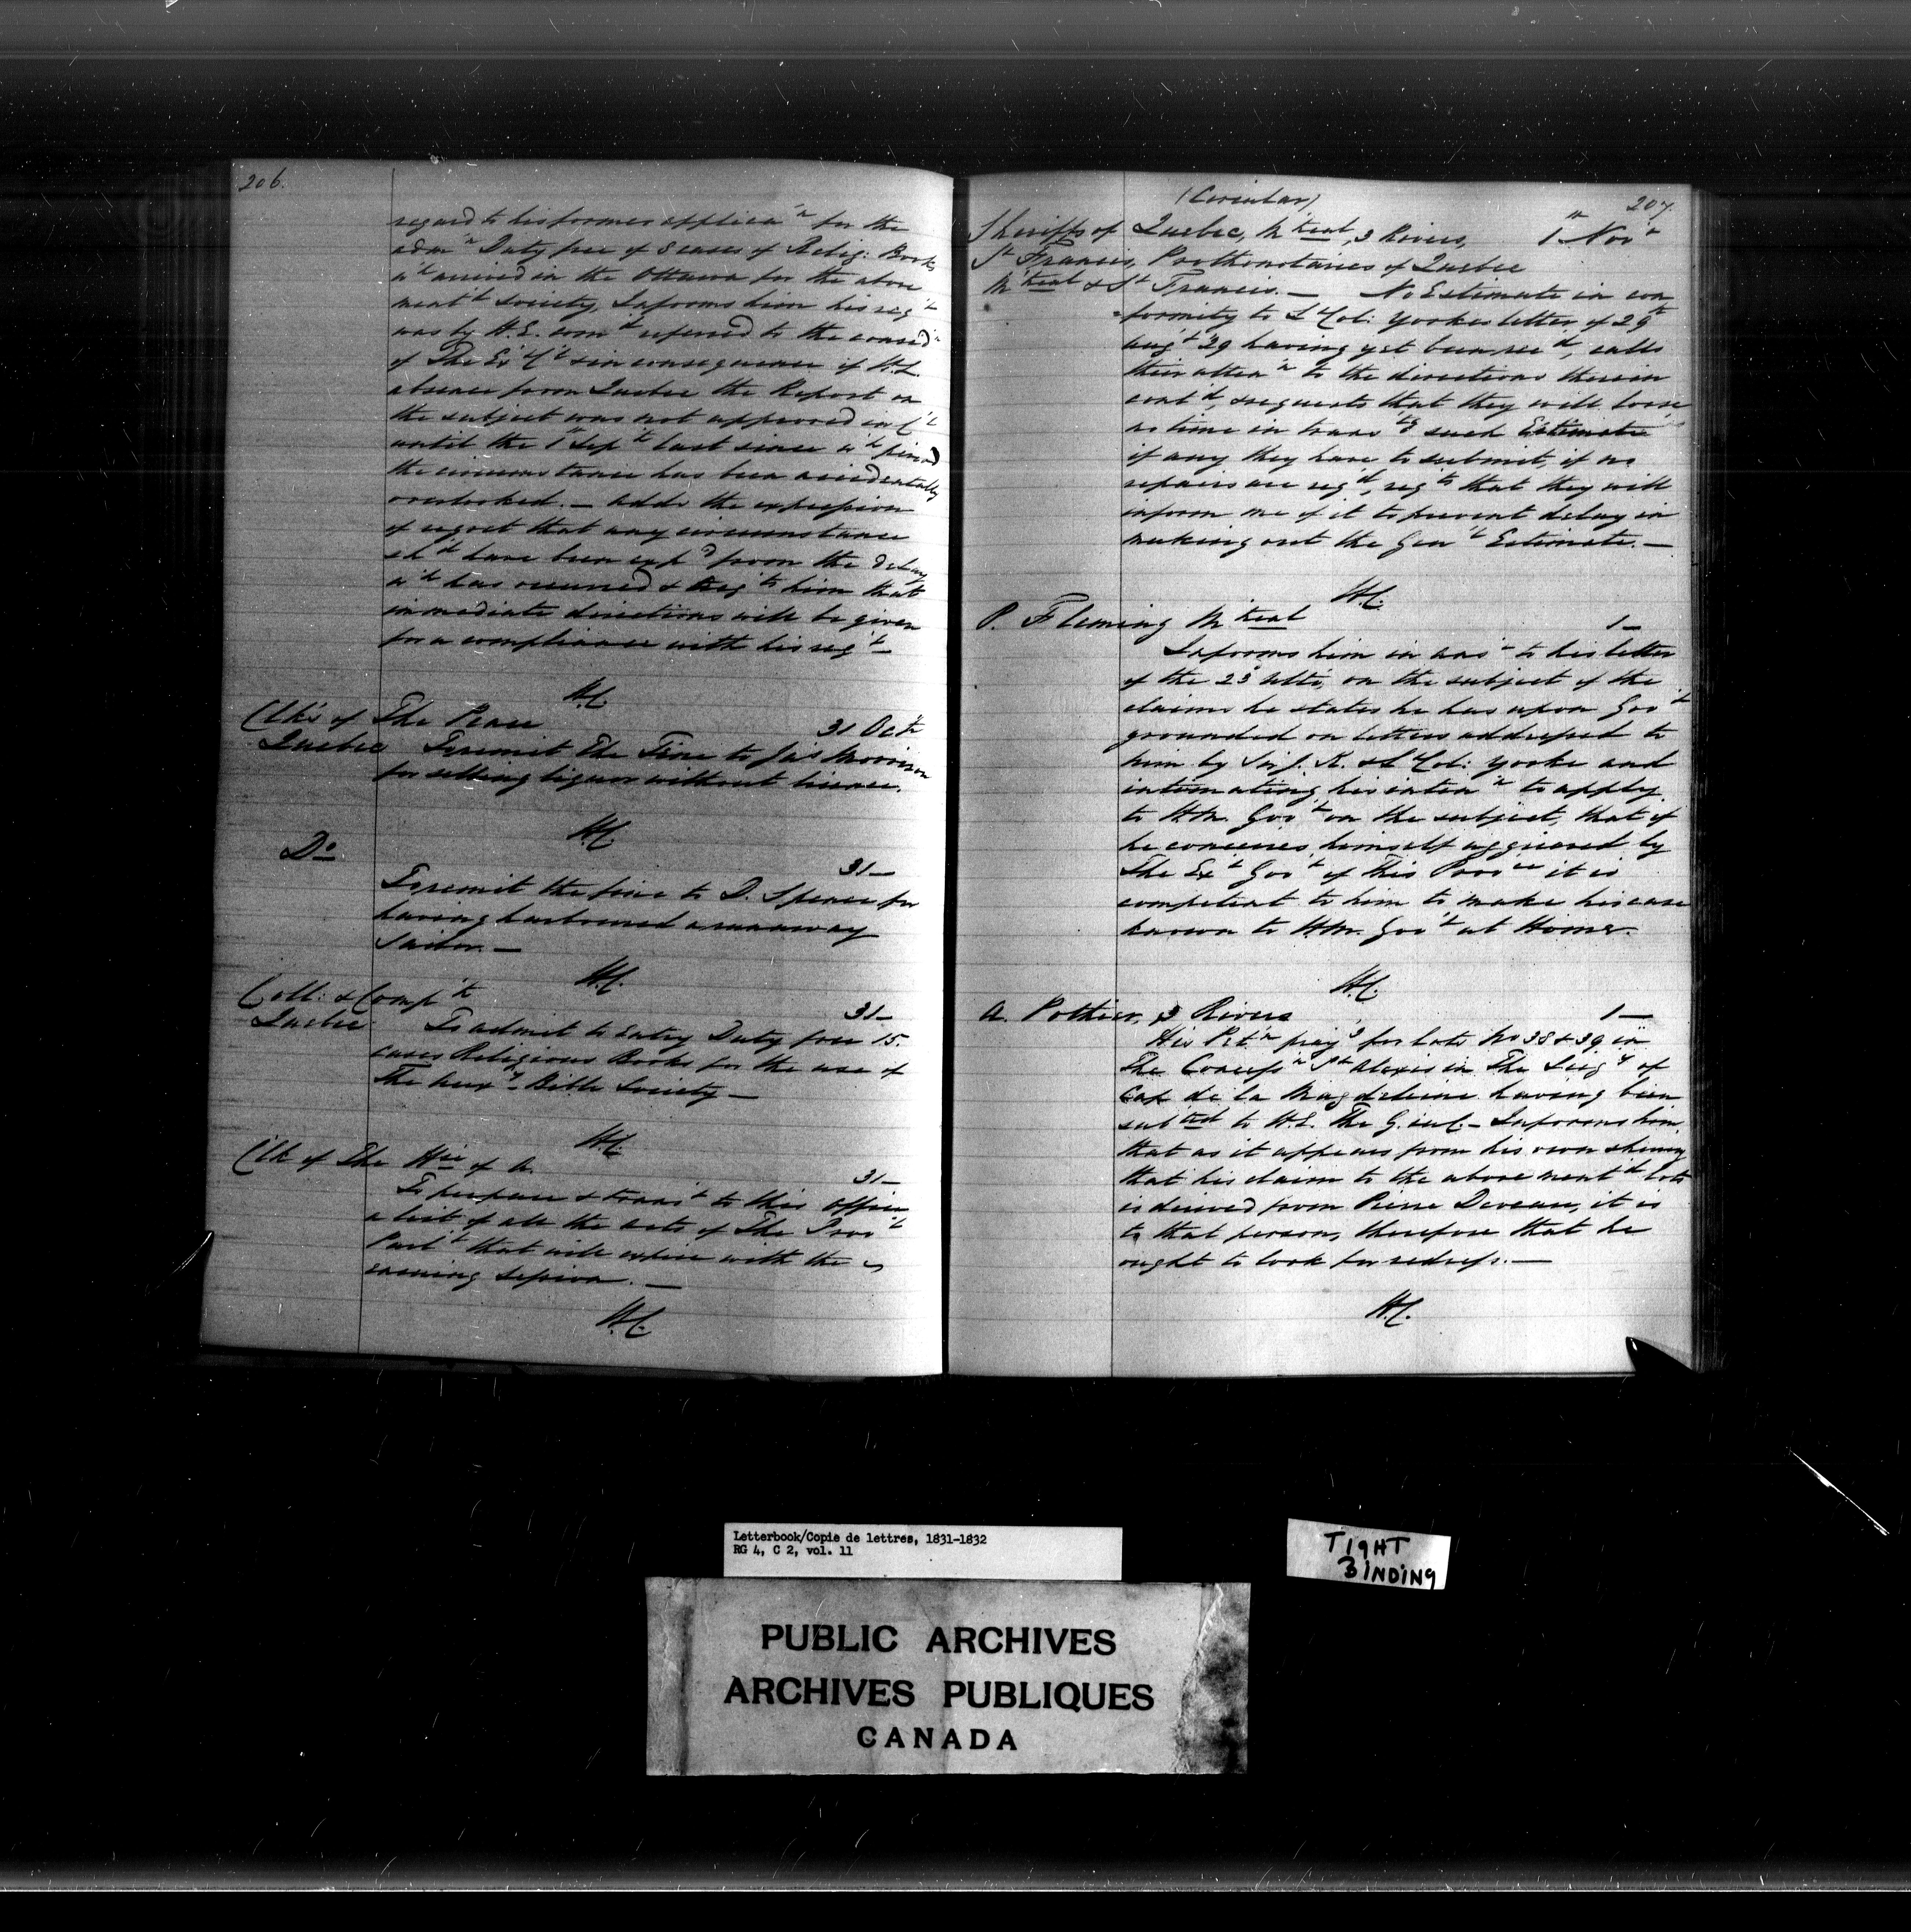 206.
regard to his former applicaⁿ for the
admⁿ Duty free of 8 cases of Relig: Books
wʰ arrived in the Ottawa for the above
mentᵈ Society, Informs him his reqᵗ
was by H.E. comᵈ referred to the considⁿ
of The Exʳ Cˡ & in consequence of H.E.
absence from Quebec the Report on
the subject was not approved in Cˡ
until the 1ˢᵗ Sepʳ last since wʰ period
the circumstance has been accidentally
overlooked. — adds the expression
of regret that any circumstance
shᵈ have been expᵈ from the delay
wʰ has occurred & that him that
immediate directions will be given
for a compliance with his reqᵗ —
H.C.
Clk's of The Peace 31 Octʳ
Quebec To remit The Fine to Jaˢ Morrison
for selling liquor without license.
H.C.
Dᵒ 31 —
To remit the fine to D. Spence for
having harboured a runaway
Sailor. —
H.C.
Coll: & Compʳ 31 —
Quebec To admit to Entry Duty free 15.
cases Religious Books for the use of
The Auxʸ Bible Society —
H.C.
Clk of The Hse of A. 31 —
To prepare & transᵗ to this Office
a list of all the acts of The Provˡ
Parlᵗ that will expire with the
ensuing Session. —
H.C.
(Circular) 207.
Sheriffs of Quebec, Mᵗreal, 3 Rivers, 1ˢᵗ Novʳ
Sᵗ Francis, Prothonotaries of Quebec
Mᵗreal & Sᵗ Francis. — No Estimate in con
=formity to Lᵗ Col: Yorkes letter of 29ᵗʰ
Augᵗ '29 having yet been recᵈ, calls
their attenⁿ to the directions therein
contᵈ, & requests that they will loose
no time in transᵗᵍ such Estimate
if any they have to submit, if no
repairs are reqᵈ, reqᵗˢ that they will
inform me of it to prevent delay in
making out the Genˡ Estimate. —
H.C.
P. Fleming Mᵗreal 1 —
Informs him in ansʳ to his letter
of the 23ᵈ Ulto, on the subject of the
claims he states he has upon Govᵗ
grounded on letters addressed to
him by Sir J. K. & Lᵗ Col: Yorke and
intimating his intenⁿ to apply
to H.M. Govᵗ on the subject, that if
he conceives himself aggrieved by
The Exᵛ Govᵗ of This Provᶜᵉ it is
competent to him to make his case
known to H.M. Govᵗ at Home.
H.C.
A. Pothier, 3 Rivers 1 —
His Petⁿ prayᵍ for lots No 38 & 39 in
The Concessⁿ Sᵗ Alexis in The Seigʸ of
Cap de la Magdeleine having been
subᵗᵉᵈ to H.E. The G. in C. — Informs him,
that as it appears from his own shewing
that his claim to the above mentᵈ lots
is derived from Pierre Deveau, it is
to that person, therefore that he
ought to look for redress. —
H.C.
Letterbook/Copie de lettres, 1831-1832
RG 4, C 2, vol. 11
TIGHT
BINDING
PUBLIC ARCHIVES
ARCHIVES PUBLIQUES
CANADA